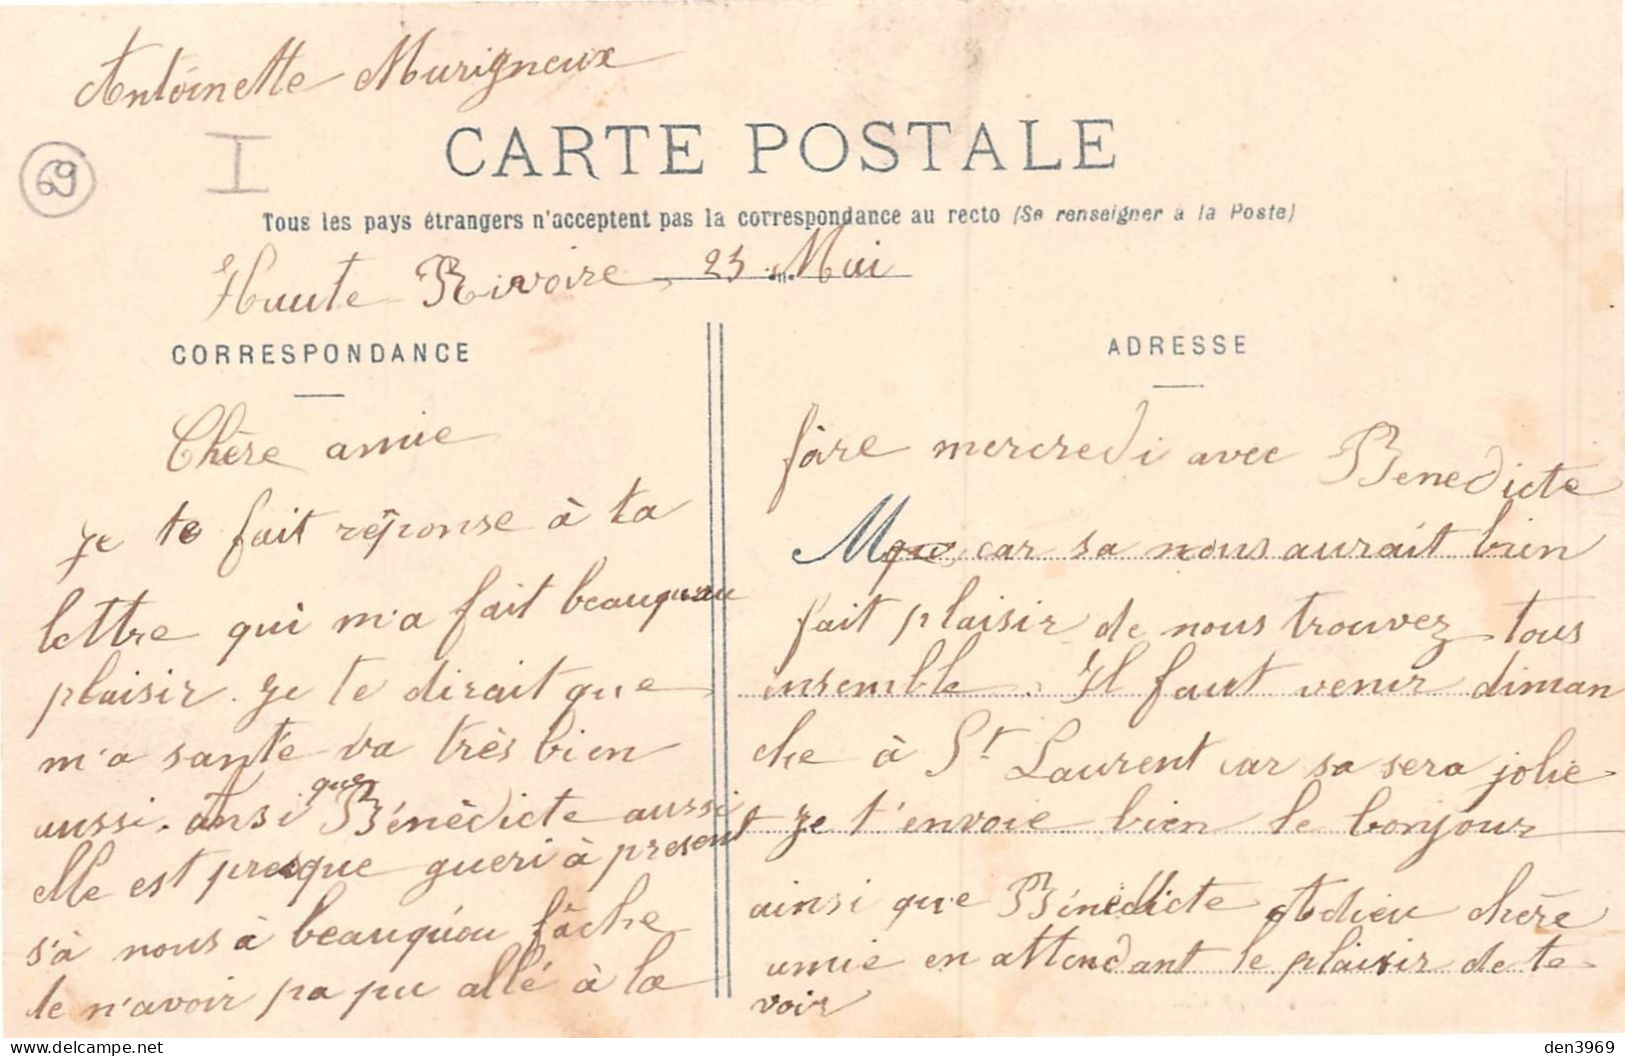 Antoinette Murigneux
69
I
CARTE POSTALE
Tous les pays étrangers n'acceptent pas la correspondance au recto (Se renseigner à la Poste)
Haute Rivoire 25 Mai
CORRESPONDANCE
Chère amie
Je te fait réponse à ta
lettre qui m'a fait beauquau
plaisir. Je te dirait que
m'a santé va très bien
aussi. ansi que Bénédicte aussi
elle est presque gueri à present
s'à nous à beauquou fâche
de n'avoir pa pu allé à la
ADRESSE
fàre mercredi avec Benedicte
M car sa nous aurait bien
fait plaisir de nous trouvez tous
ensemble. Il faut venir diman
che à St Laurent car sa sera jolie
Je t'envoie bien le bonjour
ainsi que Bénédicte Adieu chère
amie en attendant le plaisir de te
voir
den3969